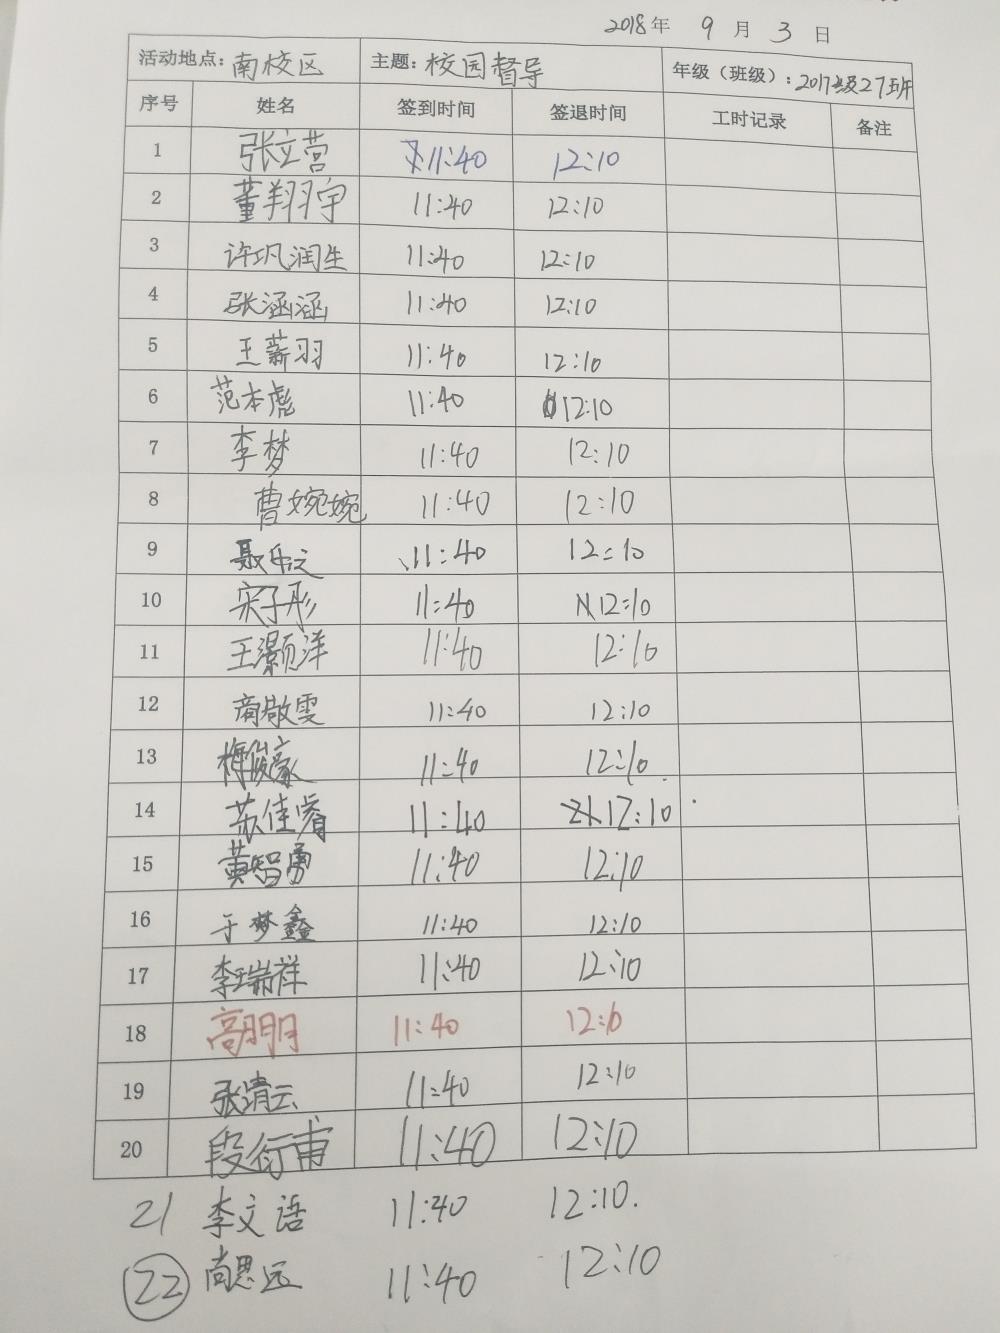 2018年 9 月 3 日
活动地点: 南校区 主题: 校园督导 年级（班级）: 2017级27班
序号 姓名 签到时间 签退时间 工时记录 备注
1 张立营 11:40 12:10
2 董翔宇 11:40 12:10
3 许巩润生 11:40 12:10
4 张涵涵 11:40 12:10
5 王薪羽 11:40 12:10
6 范本彪 11:40 12:10
7 李梦 11:40 12:10
8 曹婉婉 11:40 12:10
9 11:40 12:10
10 宋子彤 11:40 12:10
11 王灏洋 11:40 12:10
12 商敬雯 11:40 12:10
13 梅俊豪 11:40 12:10
14 苏佳睿 11:40 12:10
15 黄智勇 11:40 12:10
16 于梦鑫 11:40 12:10
17 李瑞祥 11:40 12:10
18 高明月 11:40 12:10
19 张清云 11:40 12:10
20 段衍甫 11:40 12:10
21 李文语 11:40 12:10.
22 尚思远 11:40 12:10